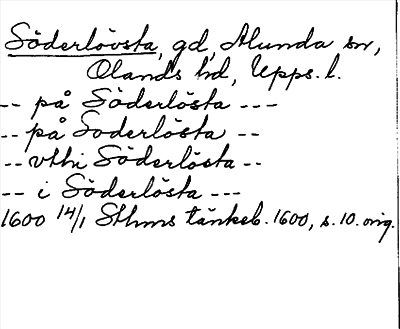 Söderlövsta, gd, Alunda sn,
Olands hd, Upps. l.
-- på Söderlösta ---
-- på Soderlösta --
-- vthi Söderlösta --
-- i Söderlösta ---
1600 14/1 Sthms tänkeb. 1600, s. 10. orig.